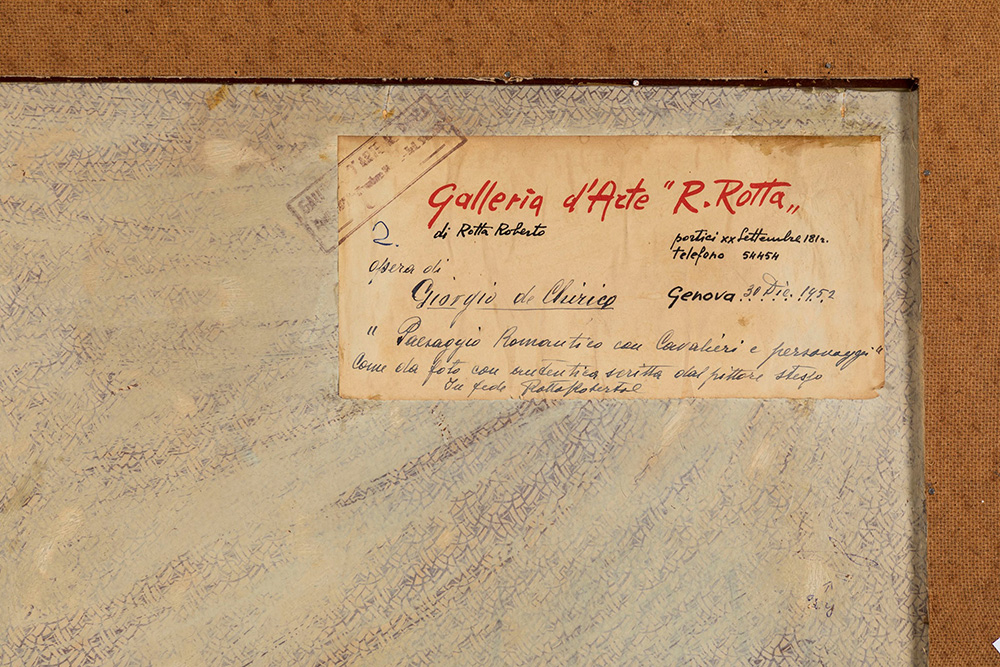 Galleria d'Arte "R. Rotta„
di Rotta Roberto
portici xx Settembre 181r.
telefono 54454
2.
opera di
Giorgio de Chirico
Genova 30 Dic. 1952
" Paesaggio Romantico con Cavalieri e personaggi "
Come da foto con autentica scritta dal pittore stesso
In fede Rotta Roberto